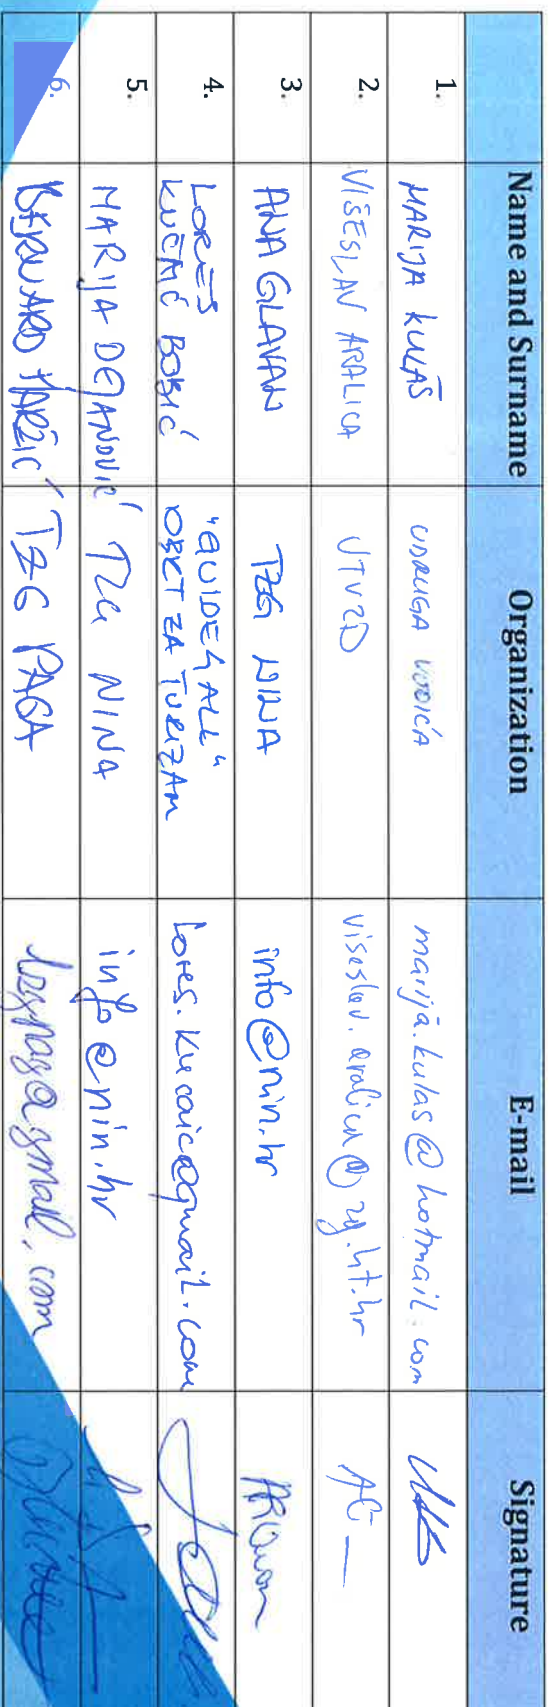 Name and Surname Organization E-mail Signature
1. MARIJA KULAŠ UDRUGA VODIČA marija.kulas@hotmail.com
2. VIŠESLAV ARALICA UTVZD viseslav.aralica@zg.ht.hr
3. ANA GLAVAN TZG NINA info@nin.hr
4. LORES KUČAIĆ BOBIĆ "GUIDE4ALL" OBRT ZA TURIZAM lores.kucaic@gmail.com
5. MARIJA DEJANOVIĆ TZG NINA info@nin.hr
6. BERNARD MARŽIĆ TZG PAGA tzgpag@gmail.com